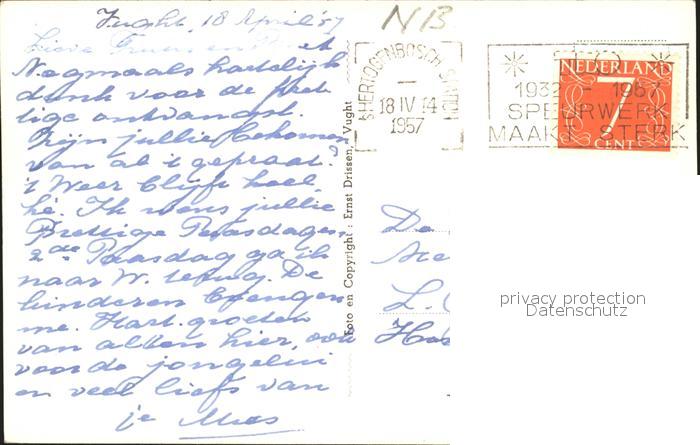 Vught, 18 April '57
NB
Lieve Truus en
Nogmaals hartelijk
dank voor de pret
tige ontvangst.
Zijn jullie bekomen
van al 't gepraat.
't Weer blijft koel,
hè. Ik wens jullie
Prettige Paasdagen
2de Paasdag ga ik
naar W. terug. De
kinderen brengen
me. Hart. groeten
van allen hier, ook
voor de jongelui
en veel liefs van
je Mies
Foto en Copyright: Ernst Drissen, Vught
'S HERTOGENBOSCH STATION
18 IV 14
1957
1932 – 1957
SPEURWERK
MAAKT STERK
NEDERLAND
7
CENT
De
L.
privacy protection
Datenschutz